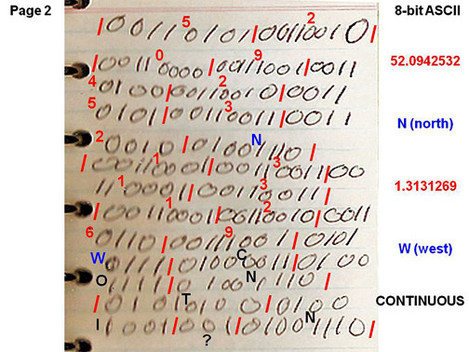 Page 2
8-bit ASCII
5 2
|00110101|00110010|
0 9
|00110000|00111001|0011
52.0942532
4 2
0100|00110010|0011
5 3
0101|00110011|0011
N (north)
2 N
0010|01001110|
1 3
|00110001|00110011|00
1 3
110001|00110011|
1.3131269
1 2
|00110001|00110010|0011
6 9
0110|00111001|0101
W (west)
W C
0111|01000011|0100
O N
1111|01001110|
CONTINUOUS
T N
|0101|0100|0100
I ?
1001|00|01001110|